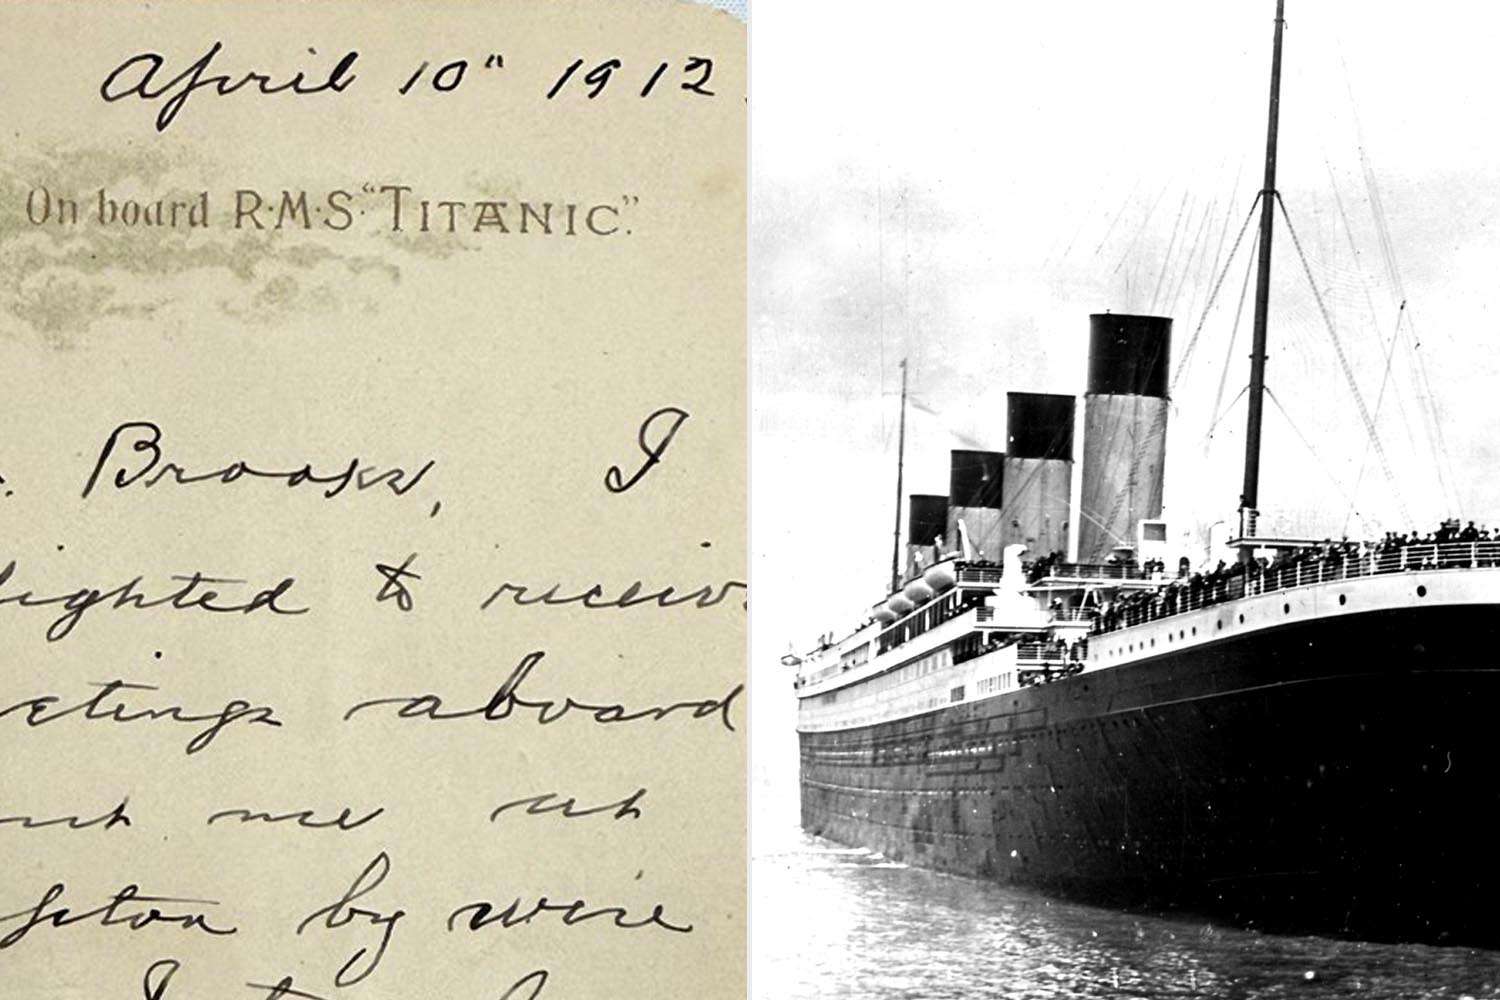 April 10" 1912.
On board R·M·S·"TITANIC".
. Brooks, I
lighted to receiv
etings aboard
me at
pton by wire
I